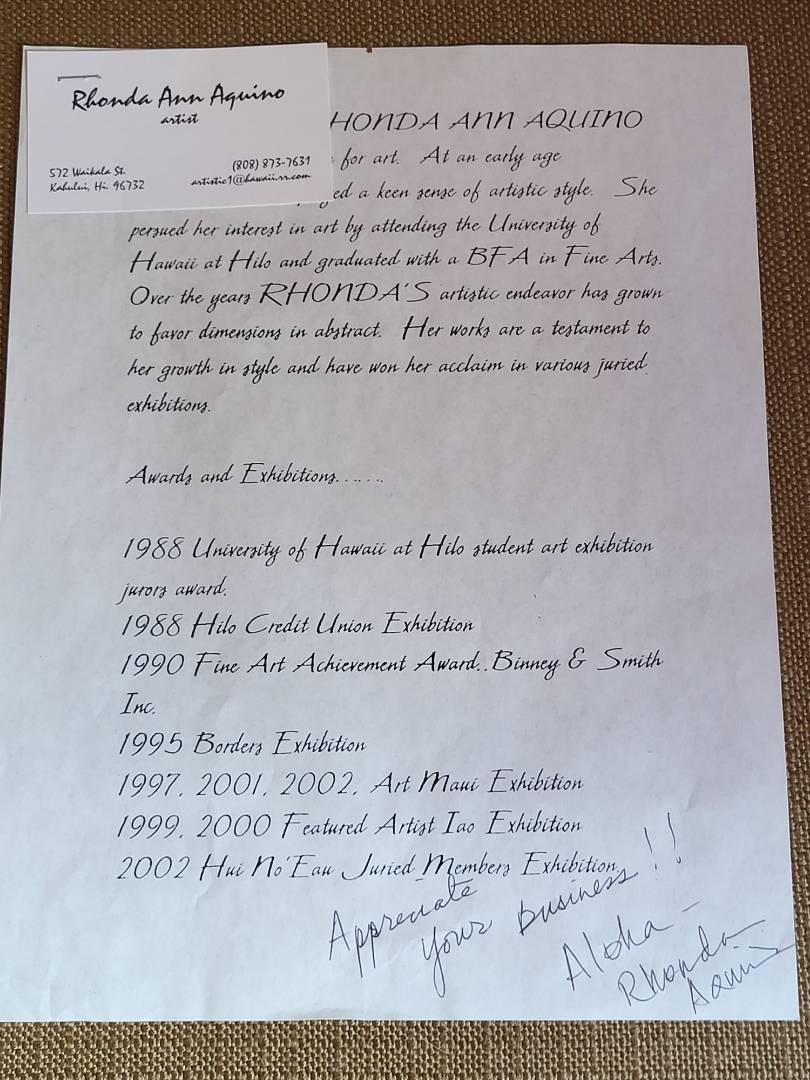 Rhonda Ann Aquino
artist
572 Waikala St.
Kahului, Hi. 96732
(808) 873-7631
artistic1@hawaii.rr.com
HONDA ANN AQUINO
for art. At an early age
ed a keen sense of artistic style. She
persued her interest in art by attending the University of
Hawaii at Hilo and graduated with a BFA in Fine Arts.
Over the years RHONDA'S artistic endeavor has grown
to favor dimensions in abstract. Her works are a testament to
her growth in style and have won her acclaim in various juried
exhibitions.
Awards and Exhibitions.......
1988 University of Hawaii at Hilo student art exhibition
jurors award.
1988 Hilo Credit Union Exhibition
1990 Fine Art Achievement Award..Binney & Smith
Inc.
1995 Borders Exhibition
1997, 2001, 2002, Art Maui Exhibition
1999, 2000 Featured Artist Iao Exhibition
2002 Hui No'Eau Juried Members Exhibition
Appreciate
your business!!
Aloha -
Rhonda
Aquino